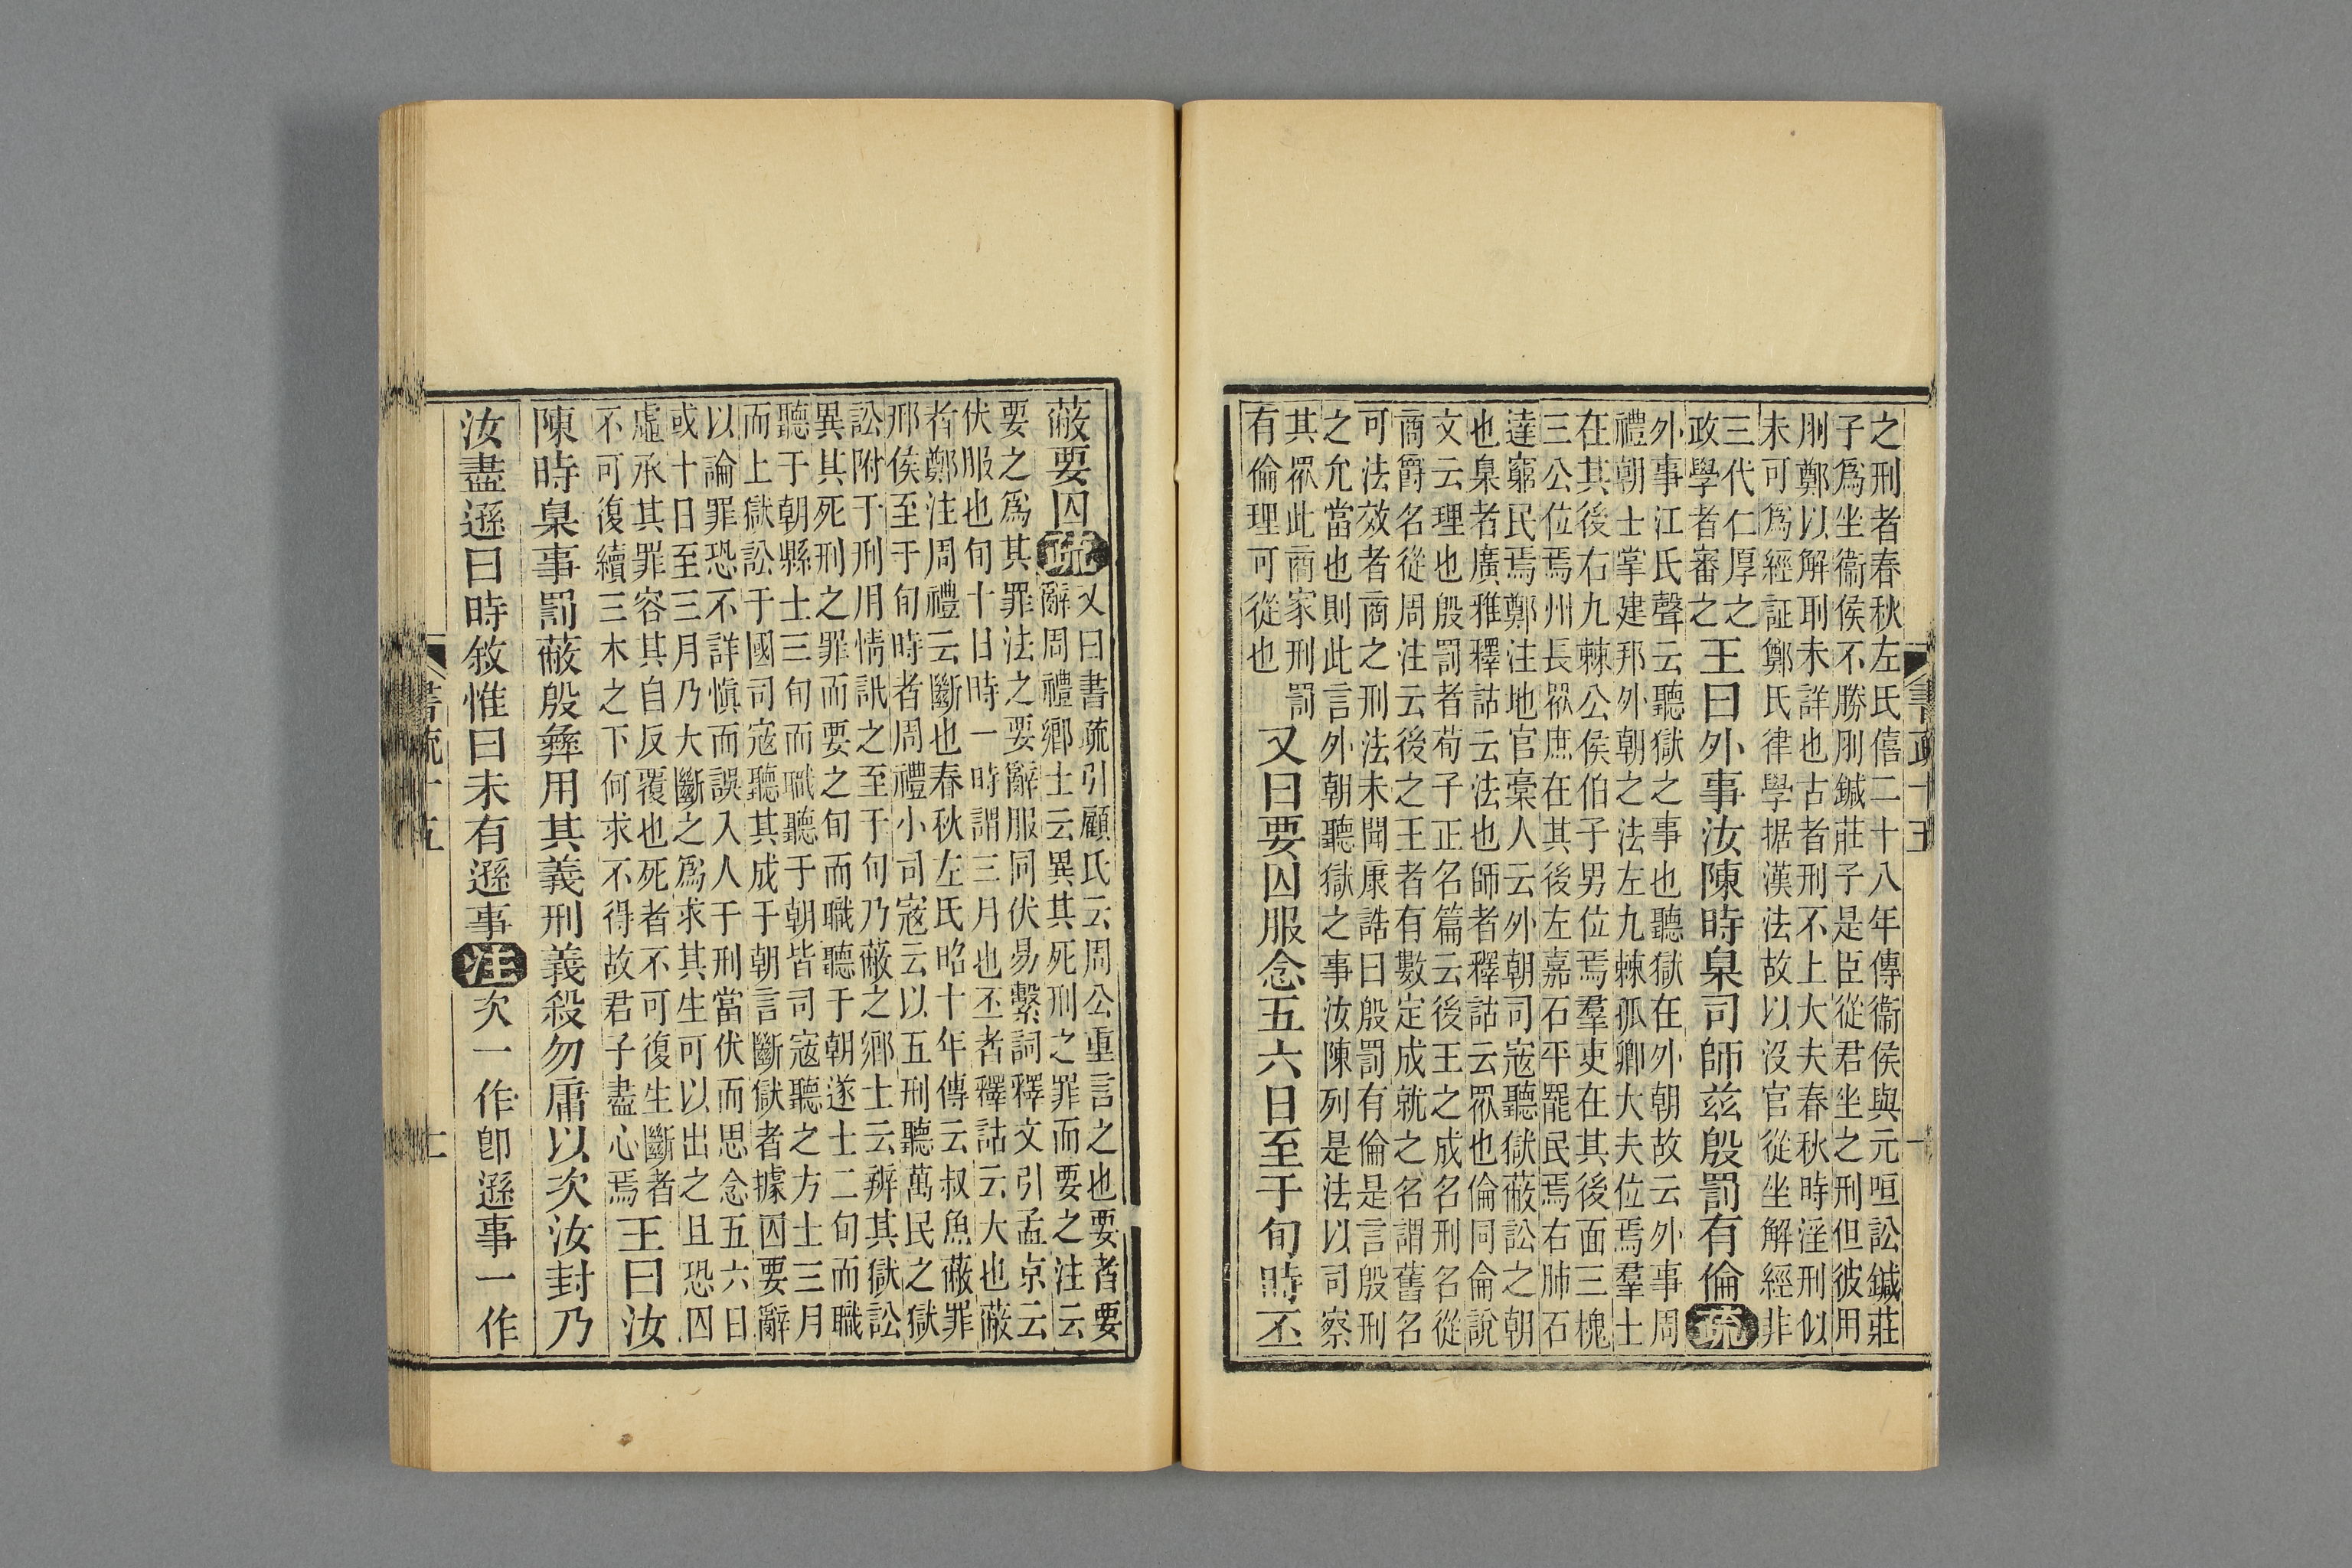 之刑者春秋左氏僖二十八年傳衞侯與元咺訟鍼莊
子爲坐衞侯不勝刖鍼莊子是臣從君坐之刑但彼用
刖鄭以解刵未詳也古者刑不上大夫春秋時淫刑似
未可爲經証鄭氏律學据漢法故以沒官從坐解經非
三代仁厚之
政學者審之
王曰外事汝陳時臬司師兹殷罰有倫疏
外事江氏聲云聽獄之事也聽獄在外朝故云外事周
禮朝士掌建邦外朝之法左九棘孤卿大夫位焉羣士
在其後右九棘公侯伯子男位焉羣吏在其後面三槐
三公位焉州長眾庶在其後左嘉石平罷民焉右肺石
達窮民焉鄭注地官槀人云外朝司寇聽獄蔽訟之朝
也臬者廣雅釋詁云法也師者釋詁云眾也倫同侖說
文云理也殷罰者荀子正名篇云後王之成名刑名從
商爵名從周注云後之王者有數定成就之名謂舊名
可法效者商之刑法未聞康誥曰殷罰有倫是言殷刑
之允當也則此言外朝聽獄之事汝陳列是法以司察
其眾此商家刑罰
有倫理可從也
又曰要囚服念五六日至于旬時丕
書疏十五
蔽要囚疏
又曰書疏引顧氏云周公重言之也要者要
辭周禮鄉士云異其死刑之罪而要之注云
要之爲其罪法之要辭服同伏易繫詞釋文引孟京云
伏服也旬十日時一時謂三月也丕者釋詁云大也蔽
者鄭注周禮云斷也春秋左氏昭十年傳云叔魚蔽罪
邢侯至于旬時者周禮小司寇云以五刑聽萬民之獄
訟附于刑用情訊之至于旬乃蔽之鄉士云辨其獄訟
異其死刑之罪而要之旬而職聽于朝遂士二旬而職
聽于朝縣士三旬而職聽于朝皆司寇聽之方士三月
而上獄訟于國司寇聽其成于朝言斷獄者據囚要辭
以論罪恐不詳愼而誤入人于刑當伏而思念五六日
或十日至三月乃大斷之爲求其生可以出之且恐囚
虛承其罪容其自反覆也死者不可復生斷者
不可復續三木之下何求不得故君子盡心焉
王曰汝
陳時臬事罰蔽殷彝用其義刑義殺勿庸以次汝封乃
汝盡遜曰時敘惟曰未有遜事注次一作卽遜事一作
書疏十五